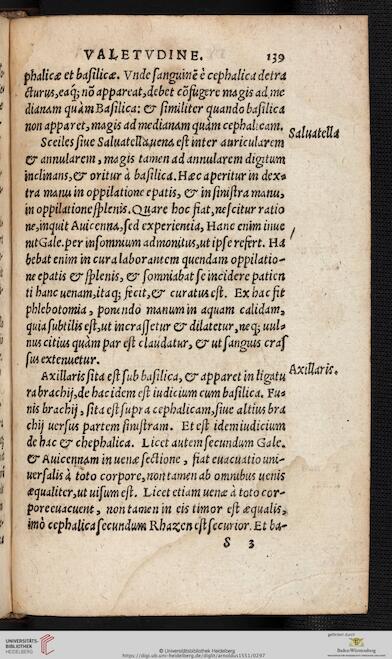 VALETVDINE. 139
phalicæ et basilicæ. Vnde sanguinẽ è cephalica detra
cturus, eaq́; nõ appareat, debet cõfugere magis ad me
dianam quàm Basilica: & similiter quando basilica
non apparet, magis ad medianam quàm cephalicam.
Salvatella
Sceiles siue Saluatella uena est inter auricularem
& annularem, magis tamen ad annularem digitum
inclinans, & oritur à basilica. Hæc aperitur in dex-
tra manu in oppilatione epatis, & in sinistra manu,
in oppilatione splenis. Quare hoc fiat, nescitur ratio
ne, inquit Auicenna, sed experientia, Hanc enim inue
nit Gale. per insomnium admonitus, ut ipse refert. Ha
bebat enim in cura laborantem quendam oppilatio-
ne epatis & splenis, & somniabat se incidere patien
ti hanc uenam, itaq; fecit, & curatus est. Ex hac fit
phlebotomia, ponendo manum in aquam calidam,
quia subtilis est, ut incrassetur & dilatetur, neq; uul-
nus citius quàm par est claudatur, & ut sanguis cras
sus extenuetur.
Axillaris.
Axillaris sita est sub basilica, & apparet in ligatu
ra brachij, de hac idem est iudicium cum basilica. Fu-
nis brachij, sita est supra cephalicam, siue altius bra
chij uersus partem sinistram. Et est idem iudicium
de hac & chephalica. Licet autem secundum Gale.
& Auicennam in uenæ sectione, fiat euacuatio uni-
uersalis à toto corpore, non tamen ab omnibus uenis
æqualiter, ut uisum est. Licet etiam uenæ à toto cor-
pore euacuent, non tamen in eis timor est æqualis,
imò cephalica secundum Rhazen est securior. Et ba-
S 3
UNIVERSITÄTS-
BIBLIOTHEK
HEIDELBERG
© Universitätsbibliothek Heidelberg
https://digi.ub.uni-heidelberg.de/diglit/arnoldus1551/0297
gefördert durch
Baden-Württemberg